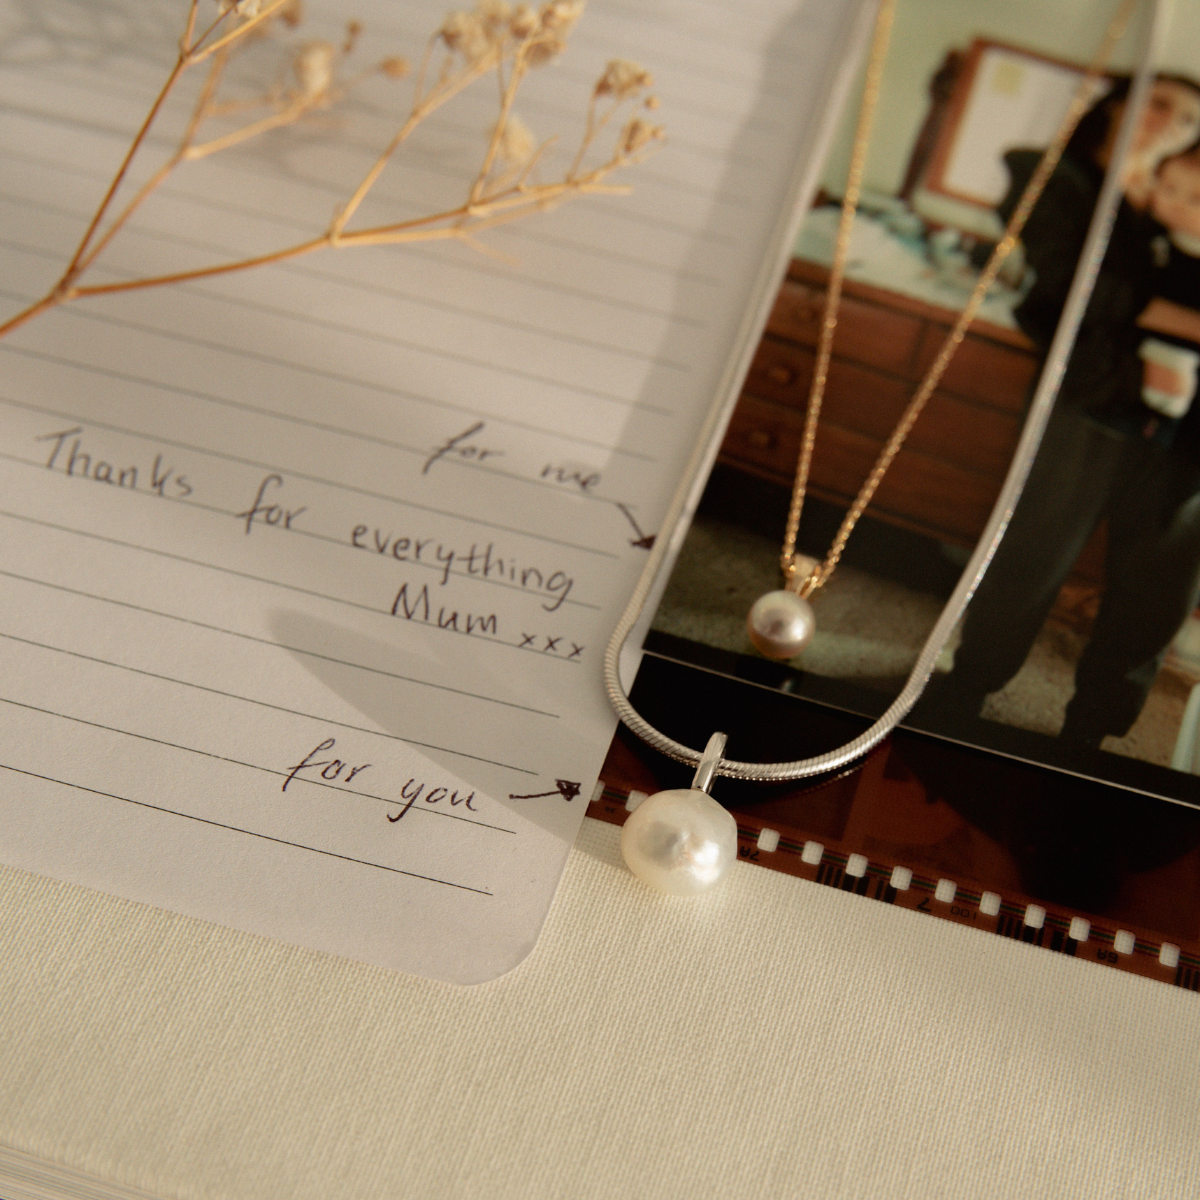 for me
Thanks for everything
Mum xxx
for you
7A
7
100
6A